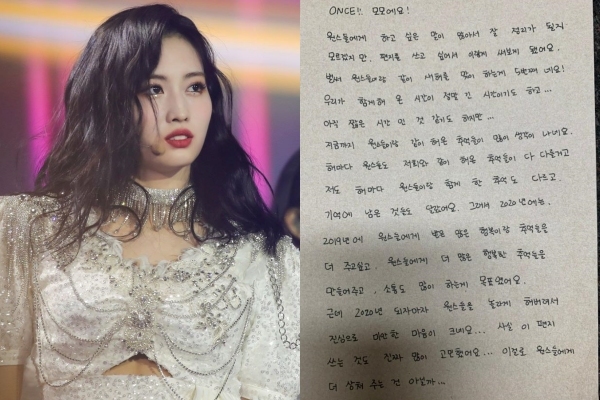 ONCE!! 모모에요!
원스들에게 하고 싶은 말이 많아서 잘 정리가 될지
모르겠지만, 편지를 쓰고 싶어서 이렇게 써보게 됐어요.
벌써 원스들이랑 같이 새해를 맞이 하는게 5번째네요!
우리가 함께해 온 시간이 정말 긴 시간이기도 하고...
아직 짧은 시간 인 것 같기도 하지만...
지금까지 원스들이랑 같이 해온 추억들이 많이 생각이 나네요.
해마다 원스들도 저희와 같이 해온 추억들이 다 다를거고
저도 해마다 원스들이랑 함께 한 추억도 다르고.
기억에 남은 것들도 달랐어요. 그래서 2020년에는,
2019년에 원스들에게 받은 많은 행복이랑 추억들을
더 주고싶고, 원스들에게 더 많은 행복한 추억들을
만들어주고, 소통도 많이 하는게 목표였어요.
근데 2020년 되자마자 원스들을 놀라게 해버려서
진심으로 미안한 마음이 크네요... 사실 이 편지
쓰는 것도 진짜 많이 고민했어요... 이걸로 원스들에게
더 상처 주는 건 아닐까...